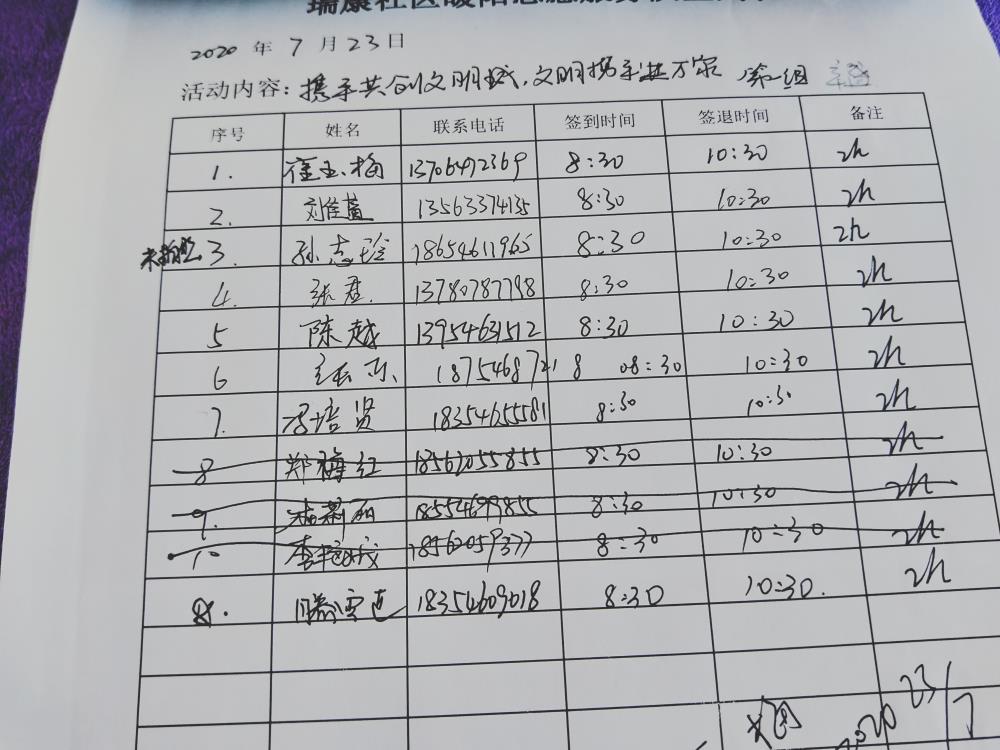 2020 年 7 月 23 日
活动内容：携手共创文明城,文明携手进万家 第一组
序号 姓名 联系电话 签到时间 签退时间 备注
1. 崔玉梅 13706492369 8:30 10:30 2h
2. 刘佳萱 13563374135 8:30 10:30 2h
3. 孙志玲 18654611965 8:30 10:30 2h
4. 张君. 13780787798 8:30 10:30 2h
5 陈越 13954631512 8:30 10:30 2h
6 18754687218 08:30 10:30 2h
7. 培贤 18354655581 8:30 10:30 2h
8 郑梅红 18562055855 8:30 10:30 2h
9. 18554699855 8:30 10:30 2h
10 李 18562059377 8:30 10:30 2h
8. 滕雪 18354609018 8:30 10:30. 2h
2020 23/7